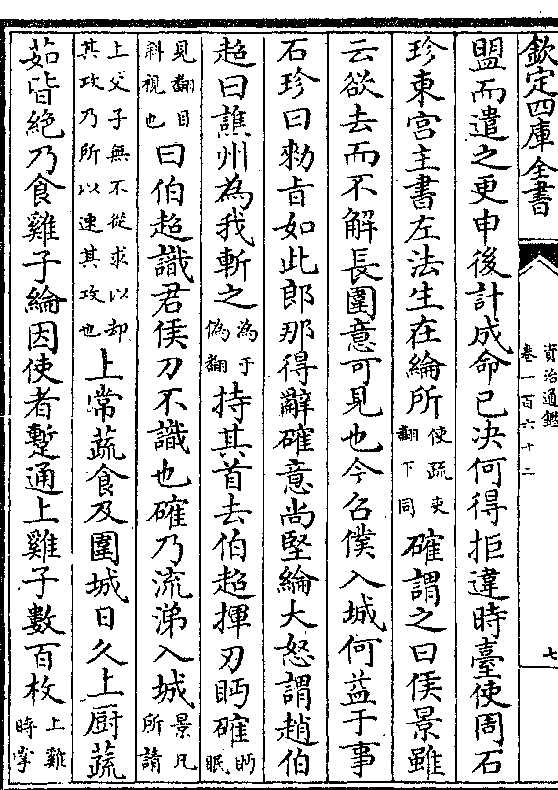 欽定四庫全書
資治通鑑
卷一百六十二
七
盟而遣之更申後計成命已決何得拒違時臺使周石
珍東宮主書左法生在綸所使疏吏翻下同確謂之曰侯景雖
云欲去而不解長圍意可見也今召僕入城何益于事
石珍曰勅旨如此郎那得辭確意尚堅綸大怒謂趙伯
超曰譙州為我斬之為于偽翻持其首去伯超揮刃眄確眄眠
見翻目斜視也曰伯超識君侯刀不識也確乃流涕入城景凡所請
上父子無不從求以却其攻乃所以速其攻也上常蔬食及圍城日久上厨蔬
茹皆絶乃食雞子綸因使者蹔通上雞子數百枚上雞時掌